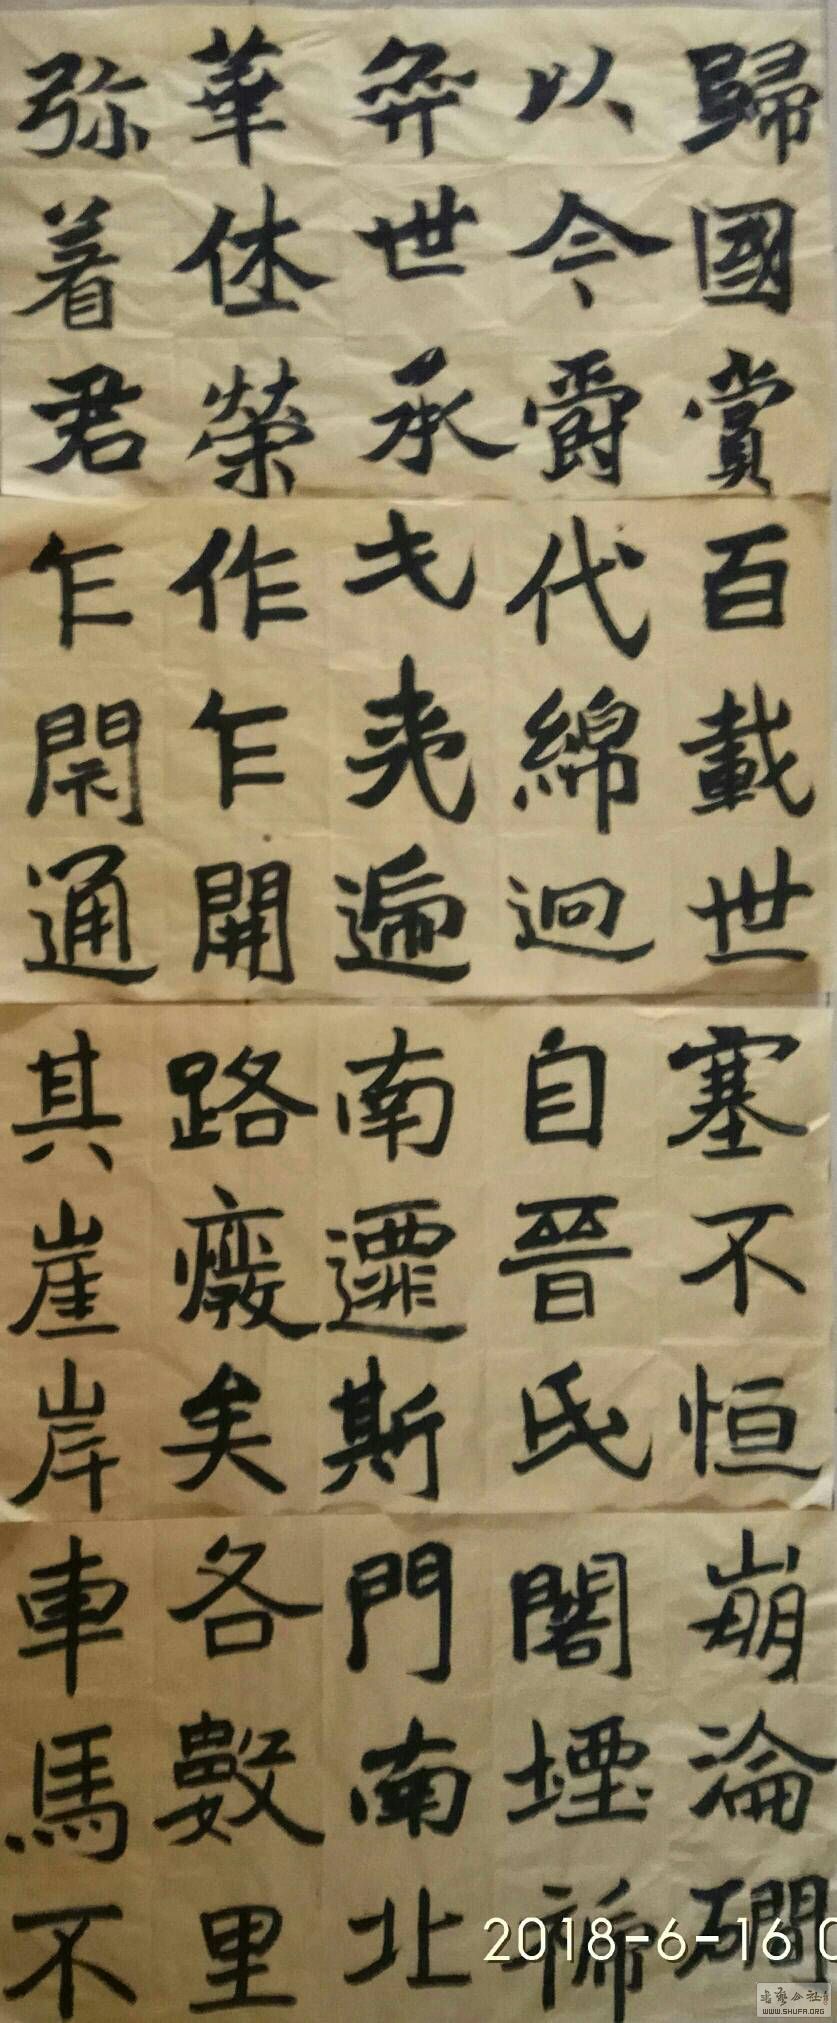 歸國賞
以今爵
弈世承
華休榮
弥着君
百載世
代綿迴
屯夷遞
作乍開
乍閇通
塞不恒
自晉氏
南遷斯
路廢矣
其崖岸
崩淪磵
閣堙褫
門南北
各數里
車馬不
2018-6-16 0
WWW.SHUFA.ORG